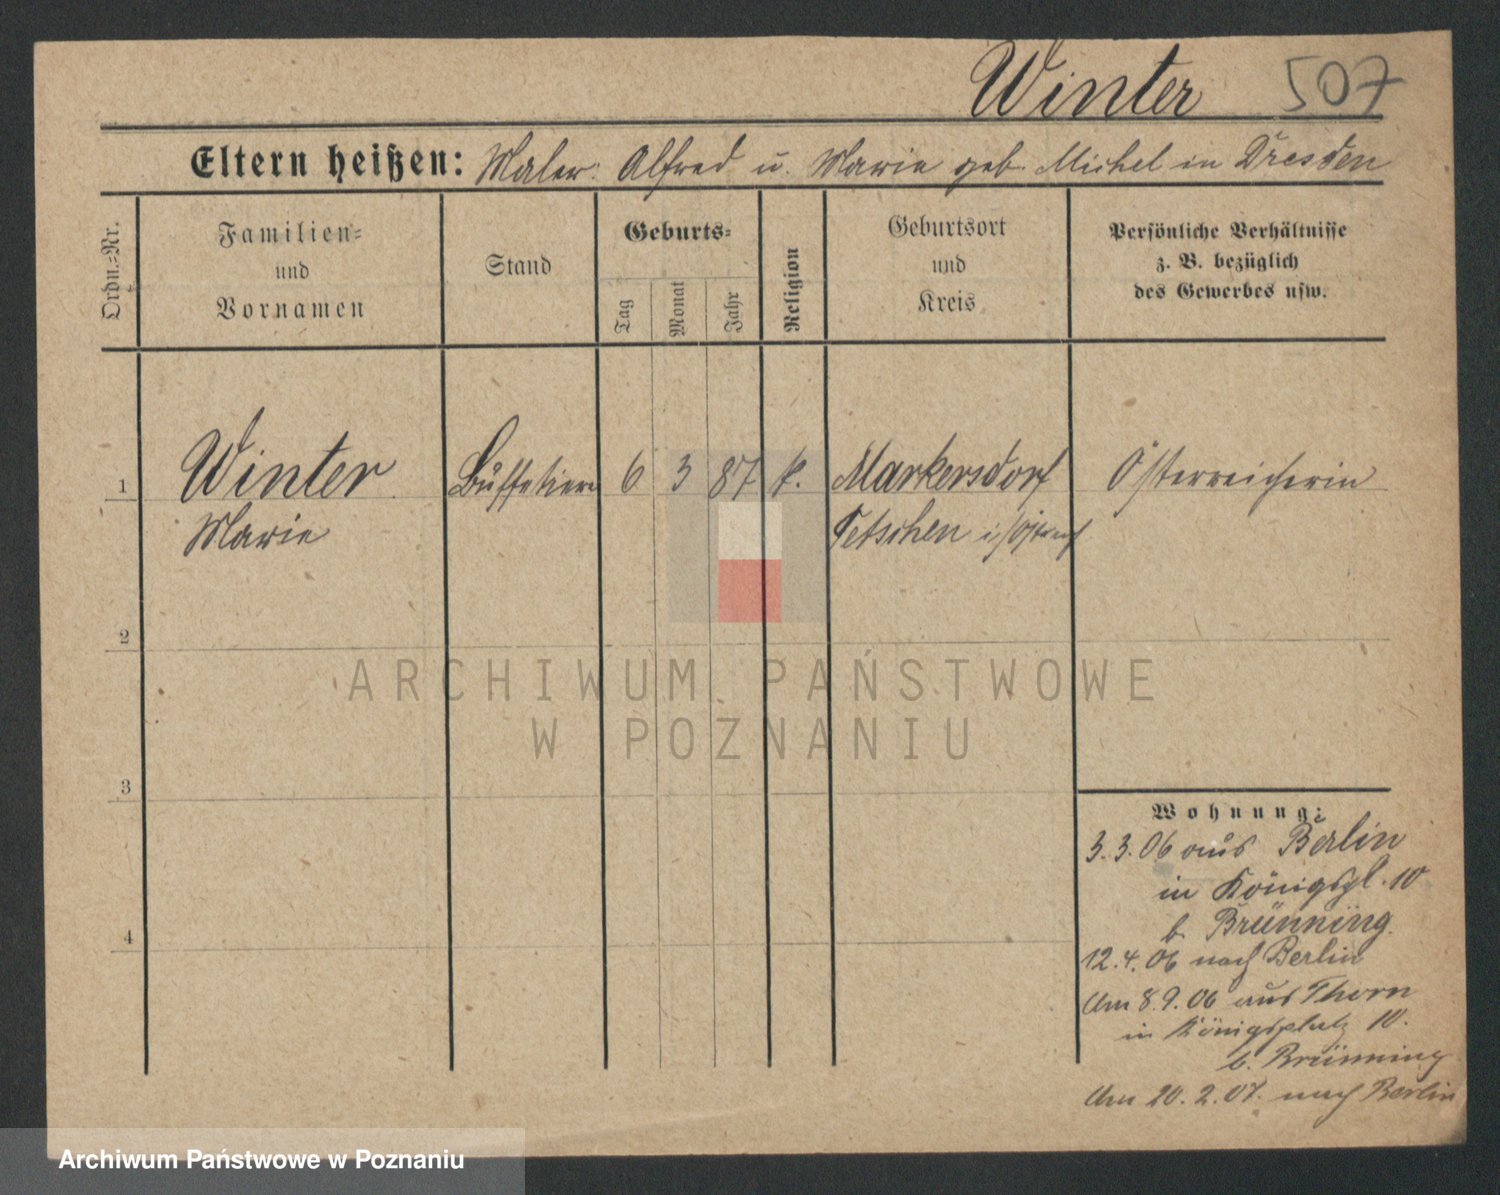 Winter 507
Eltern heißen: Maler Alfred u. Marie geb. Michel in Dresden
Ordn.=Nr.
Familien=
und
Vornamen
Stand
Geburts=
Tag
Monat
Jahr
Religion
Geburtsort
und
Kreis
Persönliche Verhältnisse
z. B. bezüglich
des Gewerbes usw.
1 Winter Büffetiere 6 3 87 k. Markersdorf Österreicherin
Marie Tetschen i/Östreich
2
3
4
Wohnung:
3.3.06 aus Berlin
in Königspl. 10
b. Brünning.
12.4.06 nach Berlin
Am 8.9.06 aus Thorn
in Königsplatz 10.
b. Brünning
Am 20.2.07. nach Berlin
ARCHIWUM PAŃSTWOWE
W POZNANIU
Archiwum Państwowe w Poznaniu